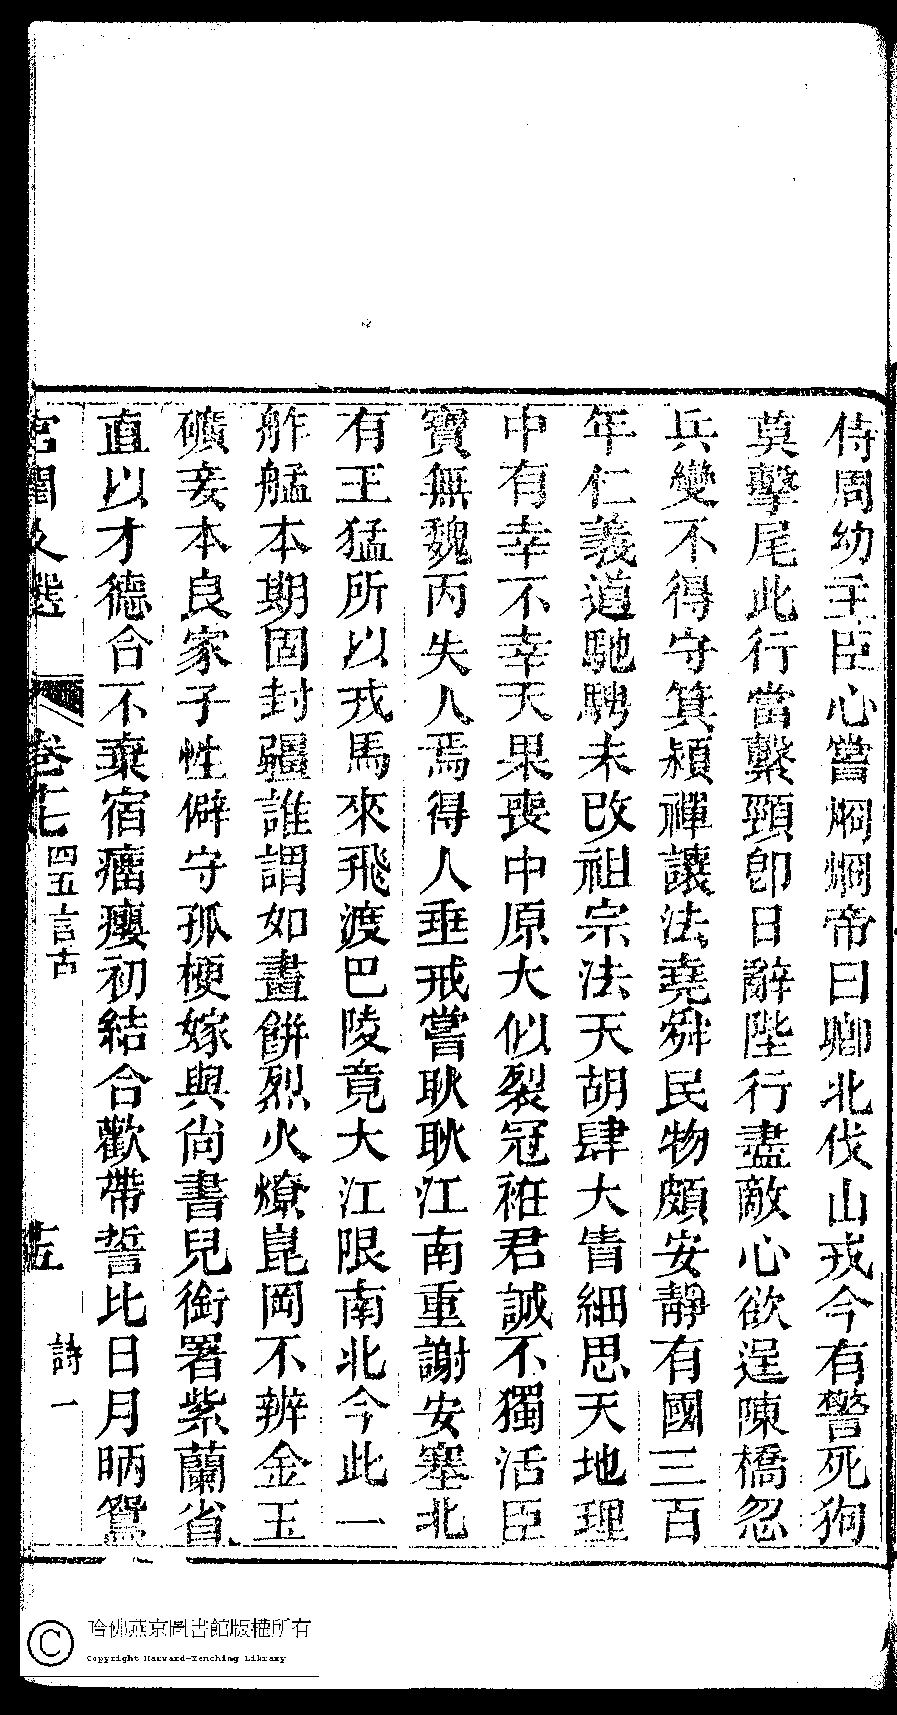 侍周幼主臣心嘗烱烱帝曰卿北伐山戎今有警死狗
莫擊尾此行當繫頸卽日辭陛行盡敵心欲逞陳橋忽
兵變不得守箕潁禪讓法堯舜民物頗安靜有國三百
年仁義道馳騁未改祖宗法天胡肆大眚細思天地理
中有幸不幸天果喪中原大似裂冠袵君誠不獨活臣
寶無魏丙失人焉得人垂戒嘗耿耿江南重謝安塞北
有王猛所以戎馬來飛渡巴陵竟大江限南北今此一
舴艋本期固封疆誰謂如畫餅烈火燎崑岡不辨金玉
礦妾本良家子性僻守孤梗嫁與尚書兒銜署紫蘭省
直以才德合不棄宿瘤癭初結合歡帶誓比日月昞鴛
宮閨文選 卷十七 四五言古 十五 詩一
哈佛燕京圖書館版權所有
Copyright Harvard-Yenching Library